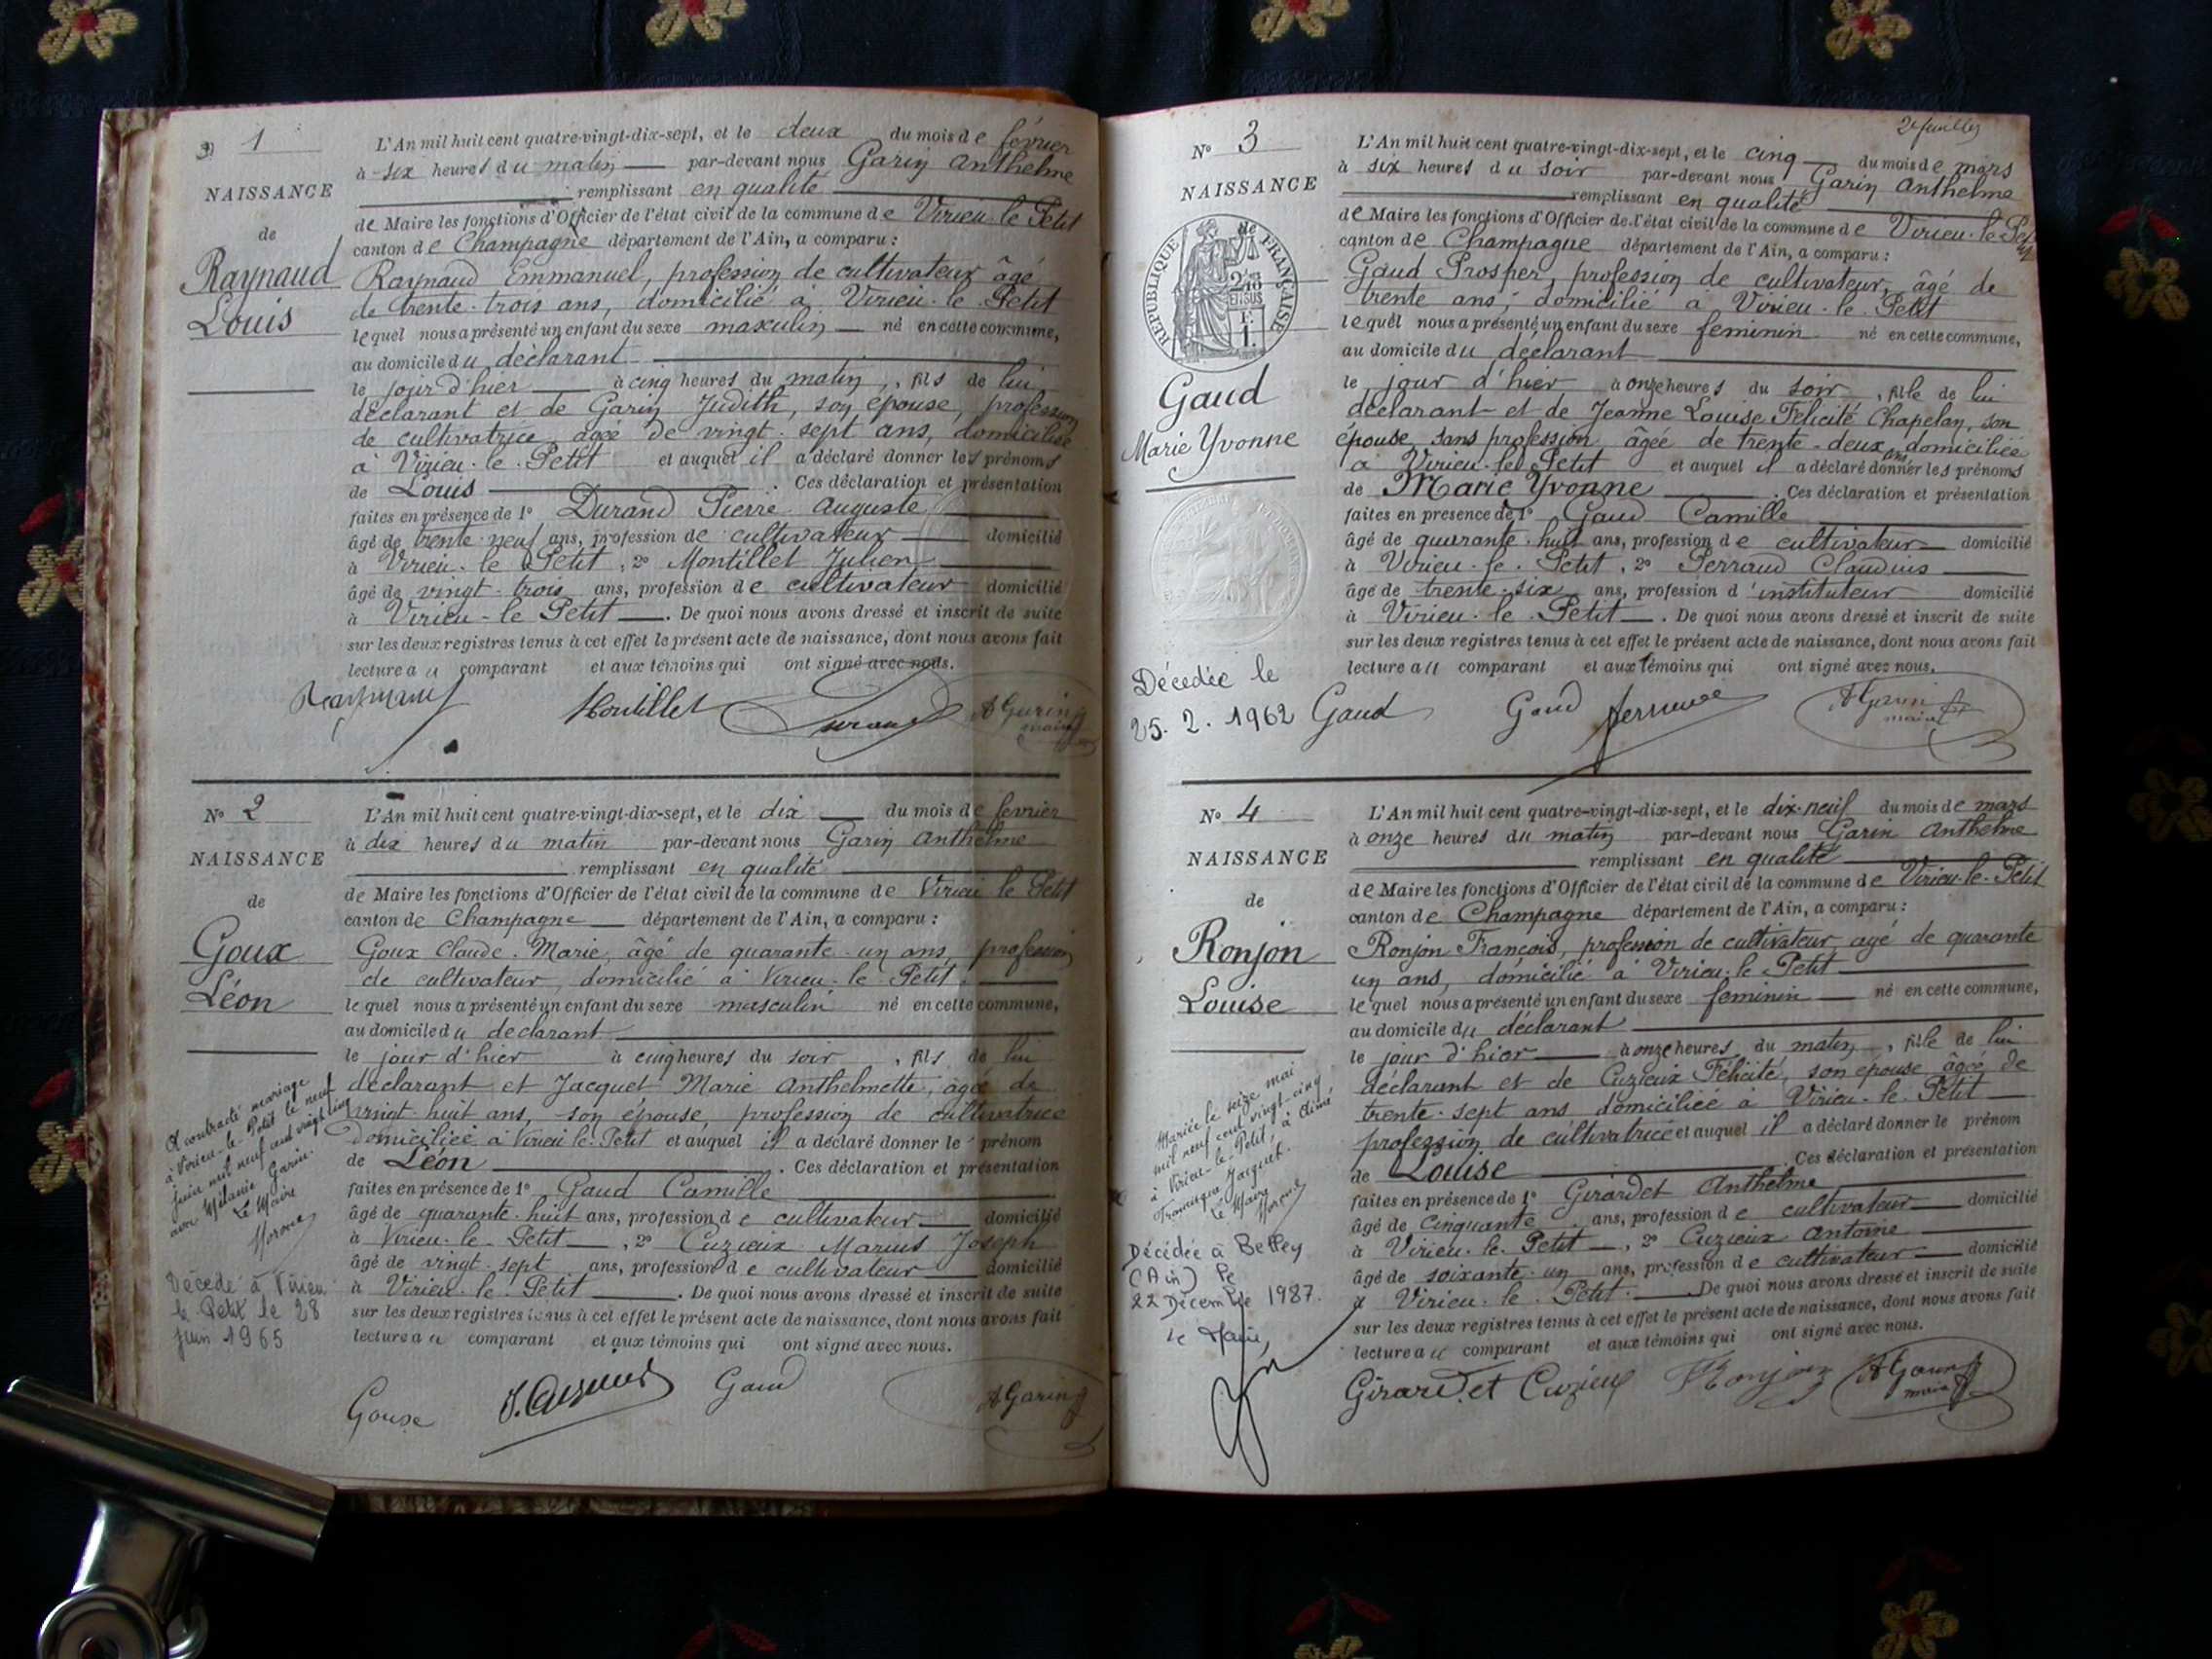 N° 1
NAISSANCE
de
Raynaud
Louis
L'An mil huit cent quatre-vingt-dix-sept, et le deux du mois de février
à six heures du matin par-devant nous Garin Anthelme
remplissant en qualité
de Maire les fonctions d'Officier de l'état civil de la commune de Virieu-le-Petit
canton de Champagne département de l'Ain, a comparu :
Raynaud Emmanuel, profession de cultivateur âgé
de trente-trois ans, domicilié à Virieu-le-Petit
lequel nous a présenté un enfant du sexe masculin né en cette commune,
au domicile du déclarant
le jour d'hier à cinq heures du matin, fils de lui
déclarant et de Garin Judith, son épouse, profession
de cultivatrice âgée de vingt-sept ans, domiciliée
à Virieu-le-Petit et auquel il a déclaré donner les prénoms
de Louis . Ces déclaration et présentation
faites en présence de 1° Durand Pierre Auguste
âgé de trente-neuf ans, profession de cultivateur domicilié
à Virieu-le Petit, 2° Montillet Julien
âgé de vingt-trois ans, profession de cultivateur domicilié
à Virieu-le Petit . De quoi nous avons dressé et inscrit de suite
sur les deux registres tenus à cet effet le présent acte de naissance, dont nous avons fait
lecture au comparant et aux témoins qui ont signé avec nous.
Raynaud Montillet Durand A Garin
maire
N° 2
NAISSANCE
de
Goux
Léon
A contracté mariage
à Virieu-le-Petit le neuf
juin mil neuf cent vingt cinq
avec Mélanie Garin.
Le Maire
Décédé à Virieu
le Petit le 28
juin 1965
L'An mil huit cent quatre-vingt-dix-sept, et le dix du mois de février
à dix heures du matin par-devant nous Garin Anthelme
remplissant en qualité
de Maire les fonctions d'Officier de l'état civil de la commune de Virieu le Petit
canton de Champagne département de l'Ain, a comparu :
Goux Claude-Marie, âgé de quarante-un ans, profession
de cultivateur, domicilié à Virieu-le-Petit.
lequel nous a présenté un enfant du sexe masculin né en cette commune,
au domicile du declarant
le jour d'hier à cinq heures du soir, fils de lui
déclarant et Jacquet Marie Anthelmette, âgée de
vingt-huit ans, son épouse, profession de cultivatrice
domiciliée à Virieu le-Petit et auquel il a déclaré donner le prénom
de Léon . Ces déclaration et présentation
faites en présence de 1° Gaud Camille
âgé de quarante-huit ans, profession de cultivateur domicilié
à Virieu-le-Petit, 2° Cuzieux Marius Joseph
âgé de vingt-sept ans, profession de cultivateur domicilié
à Virieu-le-Petit . De quoi nous avons dressé et inscrit de suite
sur les deux registres tenus à cet effet le présent acte de naissance, dont nous avons fait
lecture au comparant et aux témoins qui ont signé avec nous.
Goux Gaud A Garin
2e feuillet
N° 3
NAISSANCE
de
RÉPUBLIQUE FRANÇAISE
2/10 EN SUS
F. 1.
Gaud
Marie Yvonne
Décédée le
25. 2. 1962
L'An mil huit cent quatre-vingt-dix-sept, et le cinq du mois de mars
à six heures du soir par-devant nous Garin Anthelme
remplissant en qualité
de Maire les fonctions d'Officier de l'état civil de la commune de Virieu-le-Petit
canton de Champagne département de l'Ain, a comparu :
Gaud Prosper, profession de cultivateur, âgé de
trente ans, domicilié à Virieu-le-Petit
lequel nous a présenté un enfant du sexe feminin né en cette commune,
au domicile du déclarant
le jour d'hier à onze heures du soir, fille de lui
déclarant et de Jeanne Louise Félicité Chapelan, son
épouse, sans profession âgée de trente-deux ans domiciliée
à Virieu-le-Petit et auquel il a déclaré donner les prénoms
de Marie Yvonne . Ces déclaration et présentation
faites en présence de 1° Gaud Camille
âgé de quarante-huit ans, profession de cultivateur domicilié
à Virieu-le-Petit, 2° Perraud Claudius
âgé de trente-six ans, profession d'instituteur domicilié
à Virieu-le-Petit . De quoi nous avons dressé et inscrit de suite
sur les deux registres tenus à cet effet le présent acte de naissance, dont nous avons fait
lecture au comparant et aux témoins qui ont signé avec nous.
Gaud Gaud Perraud A Garin
maire
N° 4
NAISSANCE
de
Ronjon
Louise
Mariée le seize mai
mil neuf cent vingt-cinq
à Virieu-le-Petit, à Aimé
Jacquet.
Le Maire
Décédée à Belley
(Ain) le
22 Décembre 1987.
Le Maire,
L'An mil huit cent quatre-vingt-dix-sept, et le dix-neuf du mois de mars
à onze heures du matin par-devant nous Garin Anthelme
remplissant en qualité
de Maire les fonctions d'Officier de l'état civil de la commune de Virieu-le-Petit
canton de Champagne département de l'Ain, a comparu :
Ronjon François, profession de cultivateur, agé de quarante
un ans, domicilié à Virieu-le-Petit
lequel nous a présenté un enfant du sexe feminin né en cette commune,
au domicile du déclarant
le jour d'hier à onze heures du matin, fille de lui
déclarant et de Cuzieux Félicité, son épouse âgée de
trente-sept ans domiciliée à Virieu-le-Petit
profession de cultivatrice et auquel il a déclaré donner le prénom
de Louise . Ces déclaration et présentation
faites en présence de 1° Girardet Anthelme
âgé de cinquante ans, profession de cultivateur domicilié
à Virieu-le-Petit, 2° Cuzieux Antoine
âgé de soixante-un ans, profession de cultivateur domicilié
à Virieu-le-Petit. De quoi nous avons dressé et inscrit de suite
sur les deux registres tenus à cet effet le présent acte de naissance, dont nous avons fait
lecture au comparant et aux témoins qui ont signé avec nous.
Girardet Cuzieux Ronjon A Garin
maire